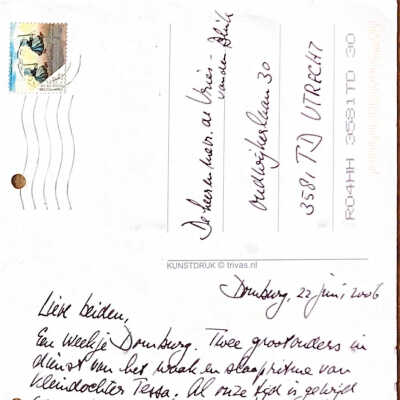 De heer en mevr. de Vries-
van den Blink
Oudwijkerlaan 30
3581 TD UTRECHT
R04HH 3581TD 30
KUNSTDRUK © trivas.nl
Domburg, 22 juni, 2006
Lieve beiden,
Een weekje Domburg. Twee grootouders in
dienst van het waak en slaapritme van
kleindochter Tessa. Al onze tijd is gewijd